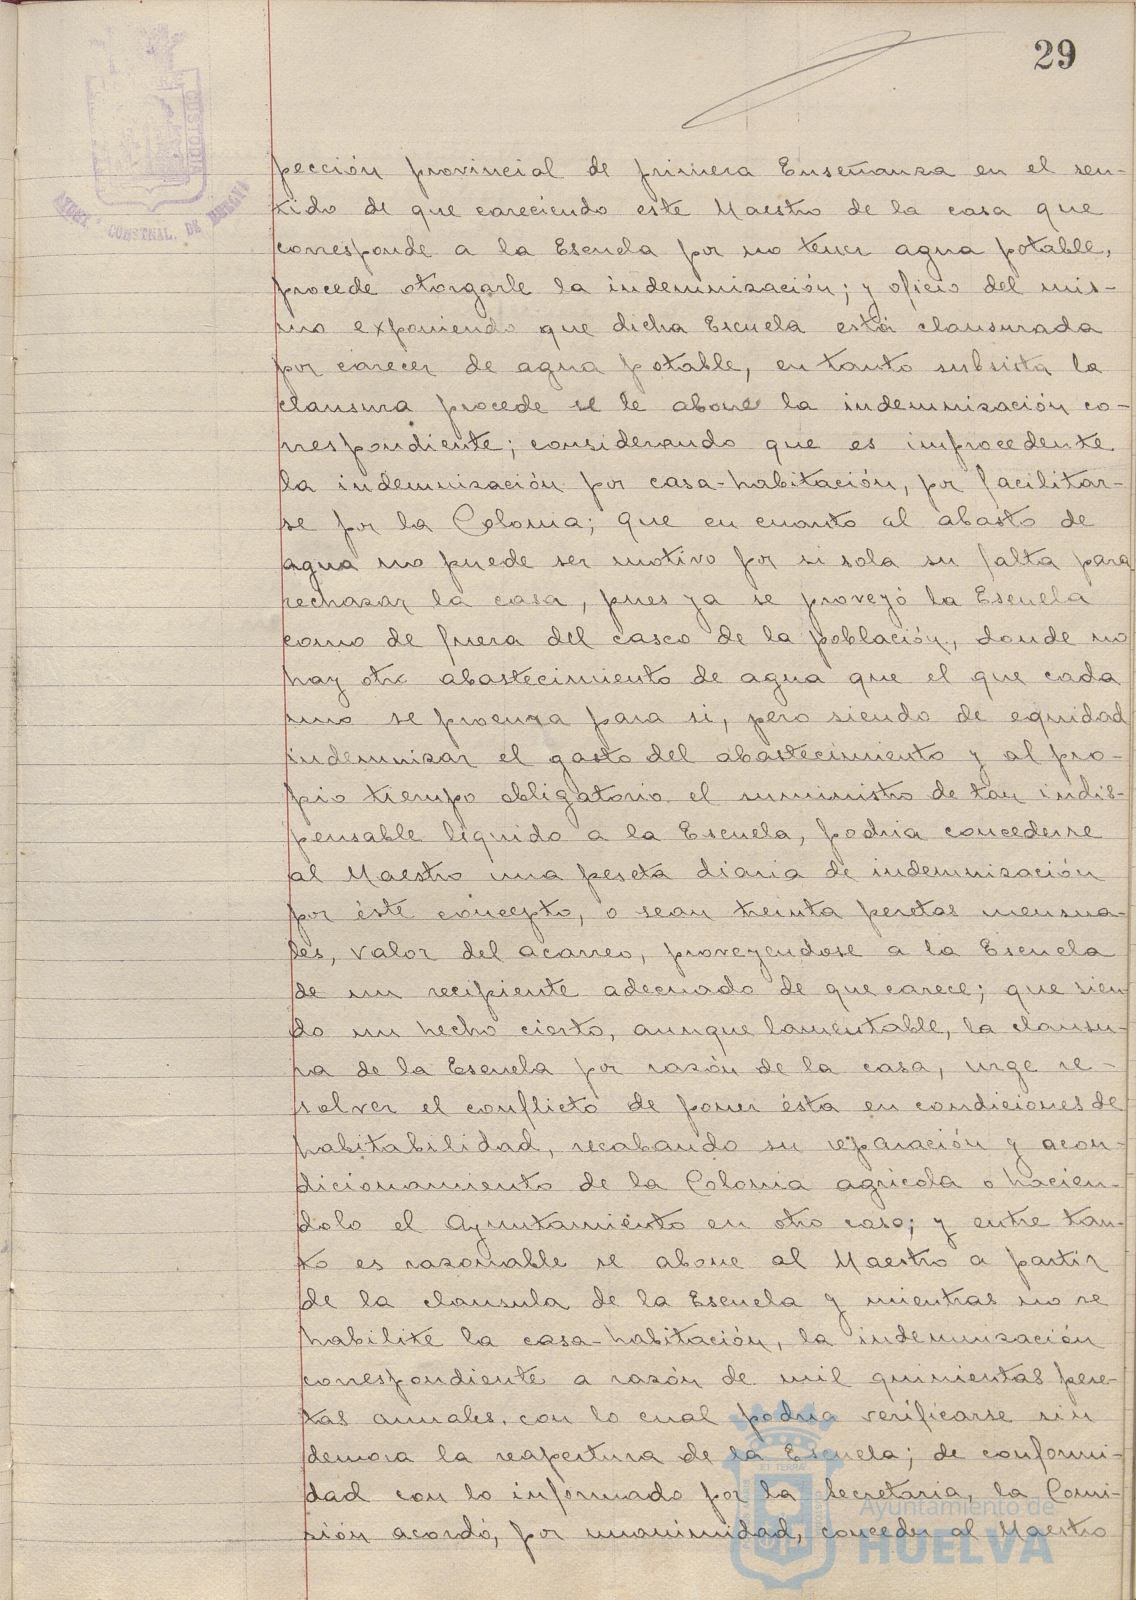 29
pección provincial de primera Enseñanza en el sen-
tido de que careciendo este Maestro de la casa que
corresponde a la Escuela por no tener agua potable,
procede otorgarle la indemnización; y oficio del mis-
mo exponiendo que dicha Escuela está clausurada
por carecer de agua potable, en tanto subsista la
clausura procede se le abone la indemnización co-
rrespondiente; considerando que es improcedente
la indemnización por casa-habitación, por facilitar-
se por la Colonia; que en cuanto al abasto de
agua no puede ser motivo por si sola su falta para
rechazar la casa, pues ya se proveyó la Escuela
como de fuera del casco de la población, donde no
hay otro abastecimiento de agua que el que cada
uno se procura para si, pero siendo de equidad
indemnizar el gasto del abastecimiento y al pro-
pio tiempo obligatorio el suministro de tan indis-
pensable líquido a la Escuela, podria concederse
al Maestro una peseta diaria de indemnización
por éste concepto, o sean treinta pesetas mensua-
les, valor del acarreo, proveyendose a la Escuela
de un recipiente adecuado de que carece; que sien
do un hecho cierto, aunque lamentable, la clausu-
ra de la Escuela por razón de la casa, urge re-
solver el conflicto de poner ésta en condiciones de
habitabilidad, recabando su reparación y acon-
dicionamiento de la Colonia agricola o hacien-
dolo el Ayuntamiento en otro caso; y entre tan-
to es razonable se abone al Maestro a partir
de la clausula de la Escuela y mientras no se
habilite la casa-habitación, la indemnización
correspondiente a razón de mil quinientas pese-
tas anuales, con lo cual podria verificarse sin
demora la reapertura de la Escuela; de conformi-
dad con lo informado por la Secretaria, la Comi-
sión acordó, por unanimidad, conceder al Maestro
CONSTNAL. DE
Ayuntamiento de
HUELVA